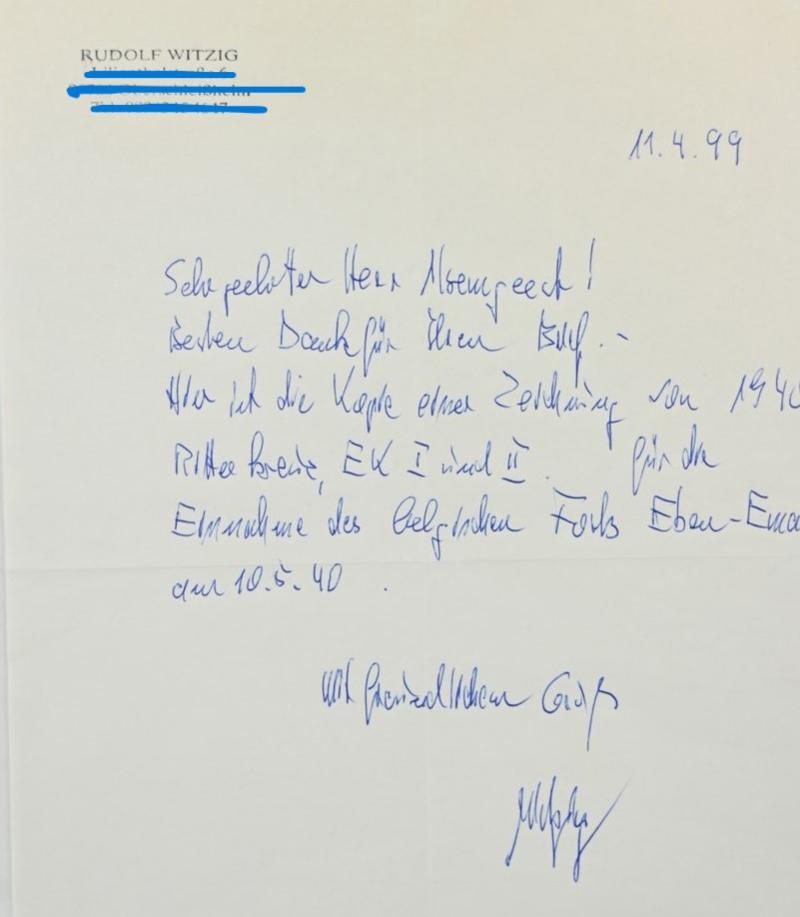 RUDOLF WITZIG
11.4.99
Sehr geehrter Herr
Besten Dank für Ihren Brief. -
Hier ist die Kopie einer Zeichnung von 1940
Ritterkreuz, EK I und II. für die
Einnahme des belgischen Forts Eben-Emael
am 10.5.40.
Mit freundlichem Gruß
Witzig